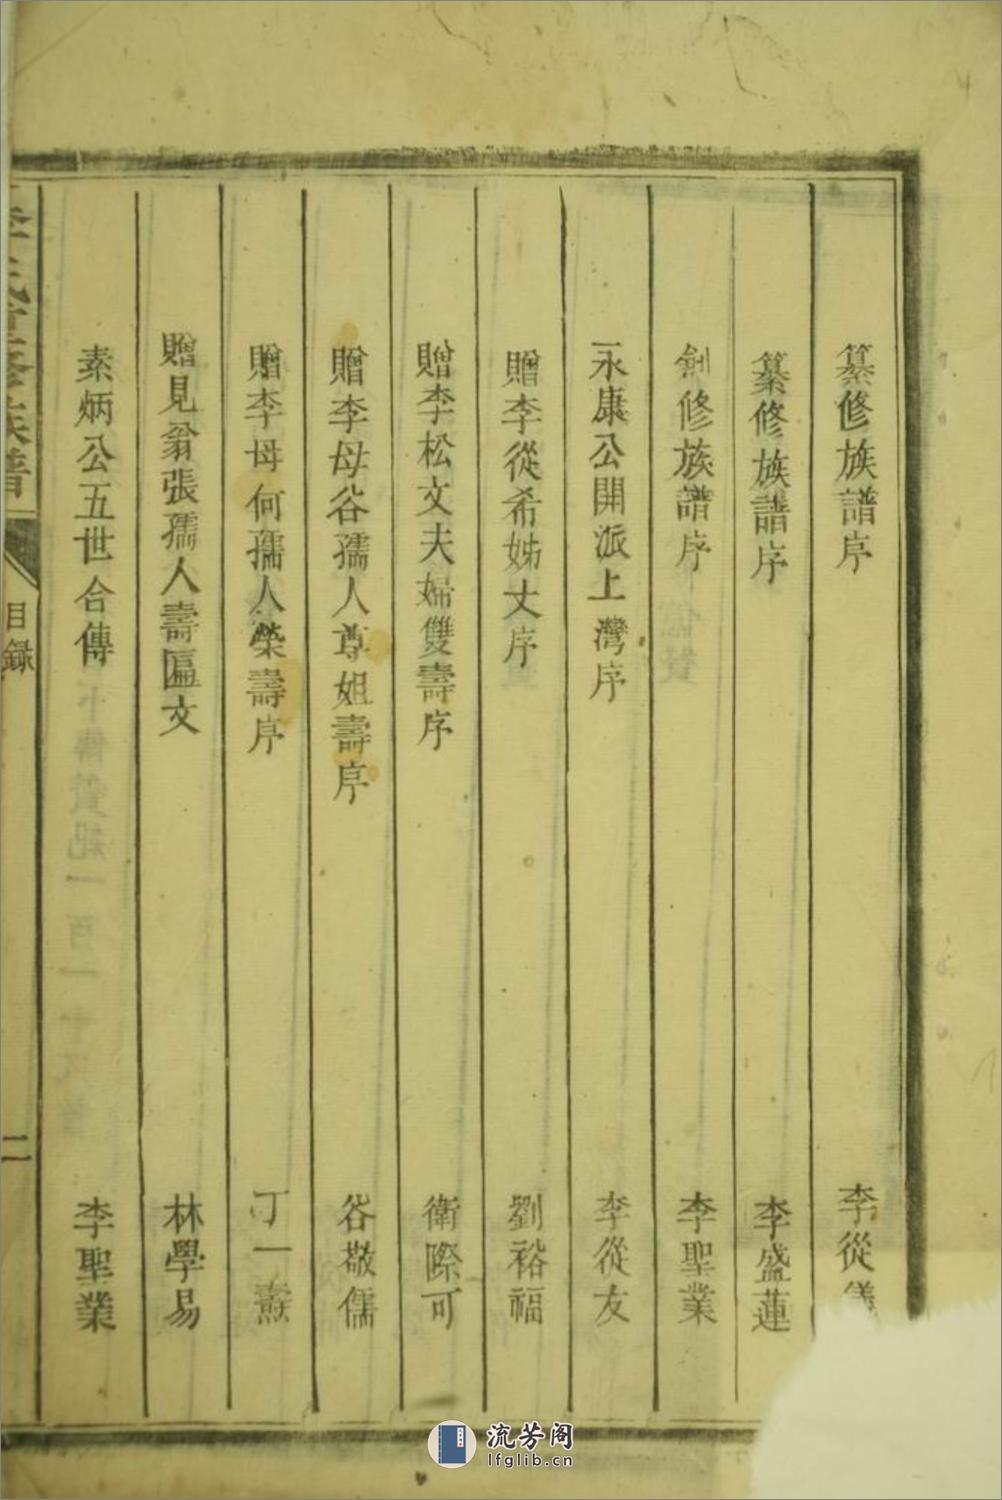 纂修族譜序 李從儀
纂修族譜序 李盛蓮
創修族譜序 李聖業
永康公開派上灣序 李從友
贈李從希姊丈序 劉裕福
贈李松文夫婦雙壽序 衛際可
贈李母谷孺人尊姐壽序 谷敬儒
贈李母何孺人榮壽序 丁一燾
贈見翁張孺人壽匾文 林學易
素炳公五世合傳 李聖業
族譜 目錄 二
流芳阁
lfglib.cn